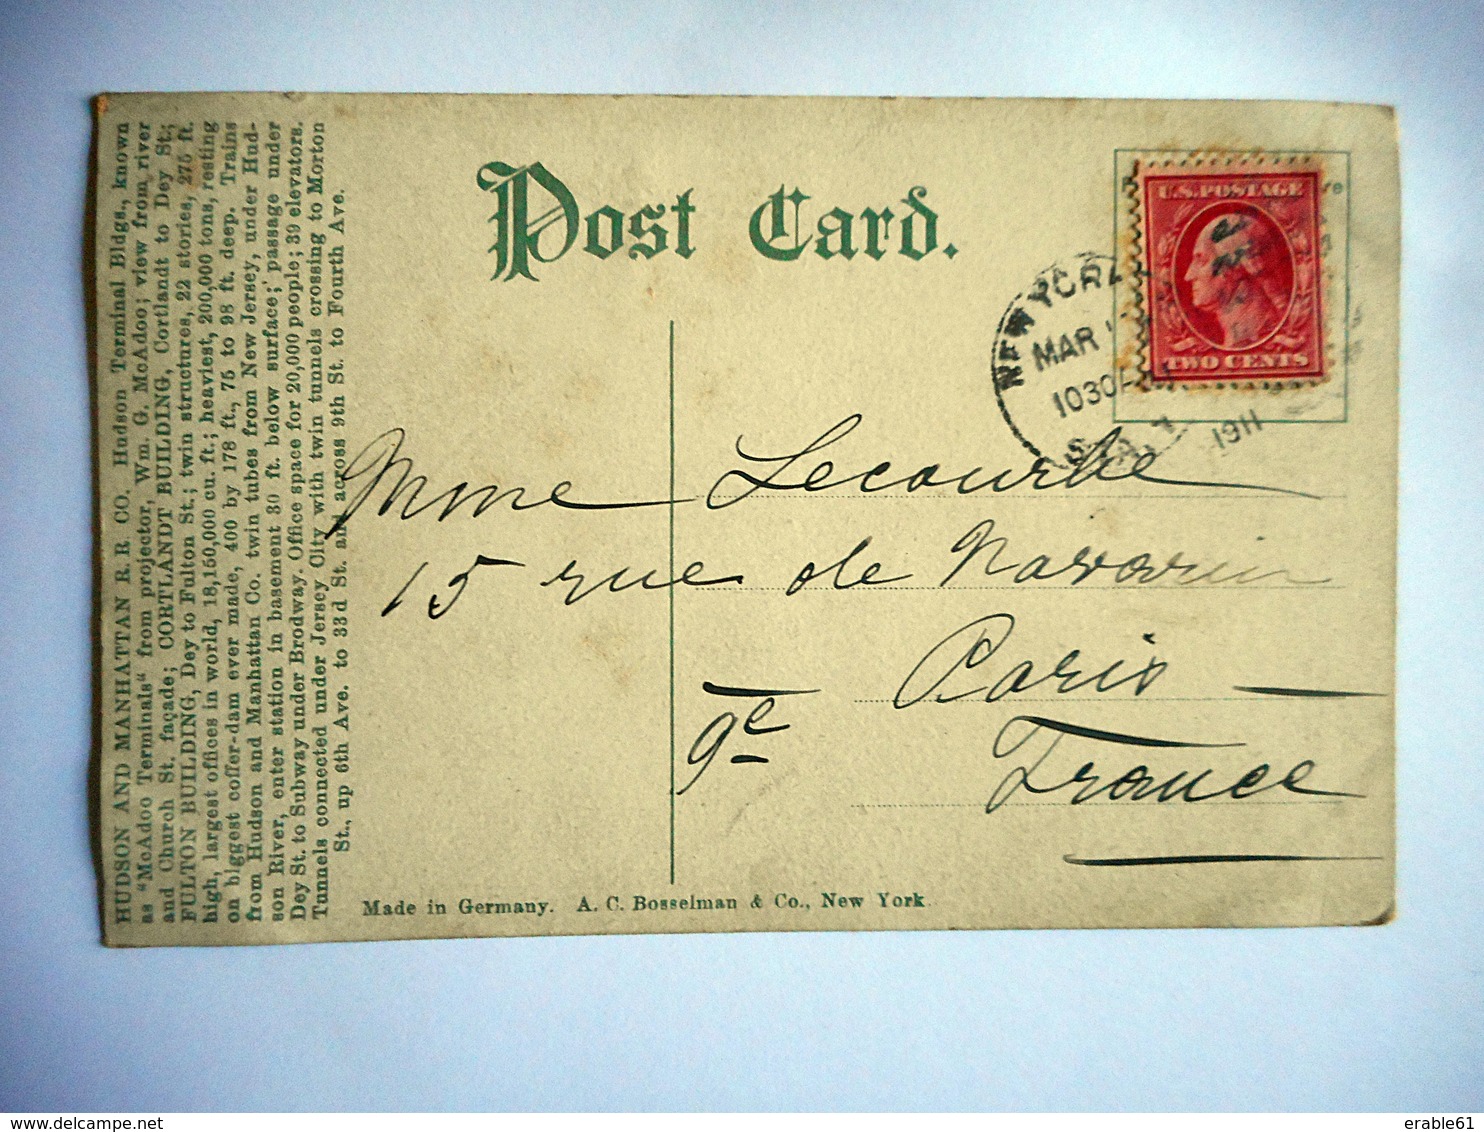 HUDSON AND MANHATTAN R. R. CO. Hudson Terminal Bldgs., known
as "McAdoo Terminals" from projector, Wm. G. McAdoo; view from river
and Church St. façade; CORTLANDT BUILDING, Cortlandt to Dey St.;
FULTON BUILDING, Dey to Fulton St.; twin structures, 22 stories, 275 ft.
high, largest offices in world, 18,150,000 cu. ft.; heaviest, 200,000 tons, resting
on biggest coffer-dam ever made, 400 by 178 ft., 75 to 98 ft. deep. Trains
from Hudson and Manhattan Co. twin tubes from New Jersey, under Hud-
son River, enter station in basement 30 ft. below surface; passage under
Dey St. to Subway under Brodway. Office space for 20,000 people; 39 elevators.
Tunnels connected under Jersey City with twin tunnels crossing to Morton
St., up 6th Ave. to 33d St. and across 9th St. to Fourth Ave.
Post Card.
U.S. POSTAGE
TWO CENTS
NEW YORK
MAR
1030
STA.
1911
Mme Lecourbe
15 rue de Navarin
Paris
9e
France
Made in Germany. A. C. Bosselman & Co., New York
erable61